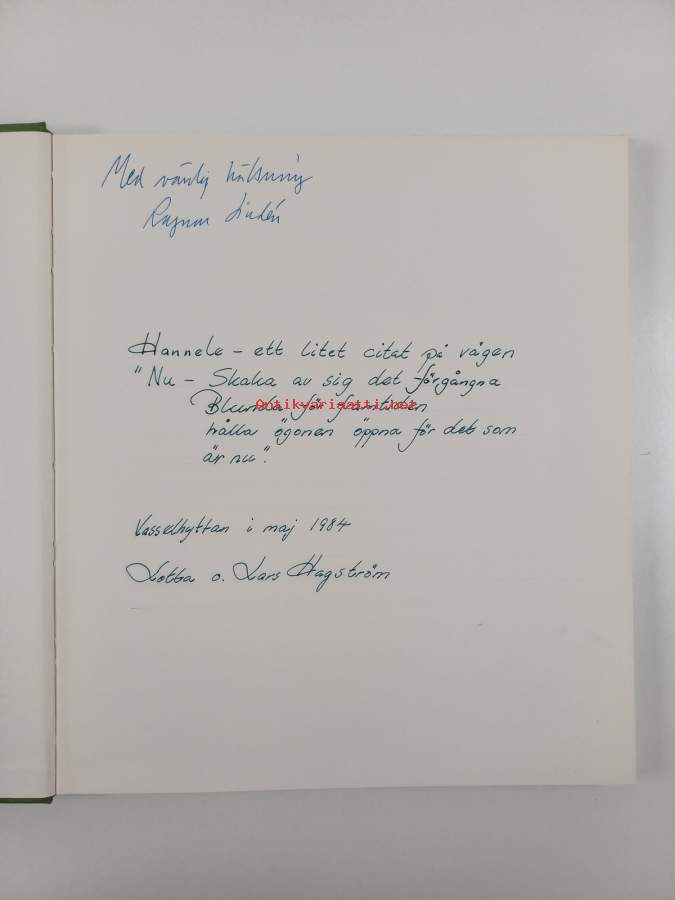 Med vänlig hälsning
Ragnar Lindén
Hannele - ett litet citat på vägen
"Nu - Skaka av sig det förgångna
Blunda för framtiden
Antikvariaatti.net
hålla ögonen öppna för det som
är nu".
Vasselhyttan i maj 1984
Lotta o. Lars Hagström